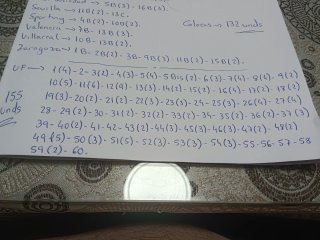 5B(3) - 16B(3).
Sevilla - 11B(2) - 13C.
Sporting - 4B(2) - 10B(2).
Valencia - 7B - 13B(3).
Villarreal - 10B - 13B(2).
Zaragoza - 1B - 2B(2) - 3B - 9B(3) - 11B(2) - 15B(2).
Cleas → 132 unds
UF → 1(4) - 2 - 3(2) - 4(3) - 5(4) - 5 Bis(2) - 6(3) - 7(4) - 8(4) - 9(2)
10(5) - 11(6) - 12(4) - 13(3) - 14(2) - 15(2) - 16(4) - 17(2) - 18(2)
19(3) - 20(2) - 21(2) - 22(3) - 23(3) - 24 - 25(3) - 26(4) - 27(4)
28 - 29(2) - 30 - 31(2) - 32(2) - 33(2) - 34 - 35(2) - 36(2) - 37(3)
39 - 40(2) - 41 - 42 - 43(2) - 44(3) - 45(3) - 46(3) - 47(2) - 48(2)
49(5) - 50(3) - 51(5) - 52(3) - 53(3) - 54(3) - 55 - 56 - 57 - 58
59(2) - 60.
155
unds